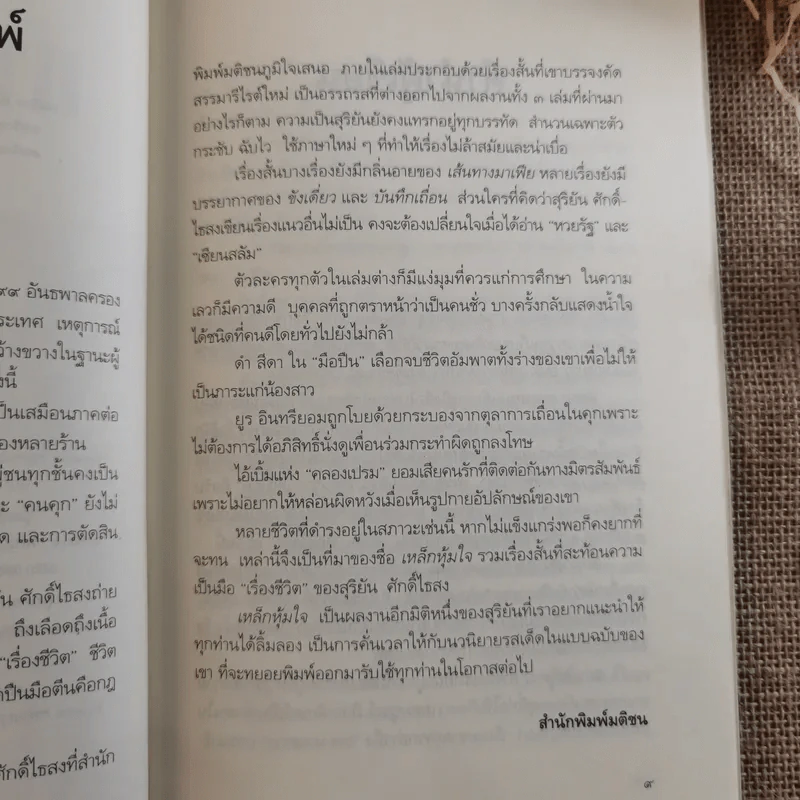 พ์
๙๙ อันธพาลครอง
ระเทศ เหตุการณ์
ว้างขวางในฐานะผู้
งนี้
ป็นเสมือนภาคต่อ
องหลายร้าน
ผู้ชนทุกชั้นคงเป็น
ะ “คนคุก” ยังไม่
ด และการตัดสิน
ัน ศักดิ์ไธสงถ่าย
ถึงเลือดถึงเนื้อ
“เรื่องชีวิต” ชีวิต
าปืนมือตีนคือกฎ
ศักดิ์ไธสงที่สำนัก
พิมพ์มติชนภูมิใจเสนอ ภายในเล่มประกอบด้วยเรื่องสั้นที่เขาบรรจงคัด
สรรมารีไรต์ใหม่ เป็นอรรถรสที่ต่างออกไปจากผลงานทั้ง ๓ เล่มที่ผ่านมา
อย่างไรก็ตาม ความเป็นสุริยันยังคงแทรกอยู่ทุกบรรทัด สำนวนเฉพาะตัว
กระชับ ฉับไว ใช้ภาษาใหม่ ๆ ที่ทำให้เรื่องไม่ล้าสมัยและน่าเบื่อ
เรื่องสั้นบางเรื่องยังมีกลิ่นอายของ เส้นทางมาเฟีย หลายเรื่องยังมี
บรรยากาศของ ขังเดี่ยว และ บันทึกเถื่อน ส่วนใครที่คิดว่าสุริยัน ศักดิ์-
ไธสงเขียนเรื่องแนวอื่นไม่เป็น คงจะต้องเปลี่ยนใจเมื่อได้อ่าน “หวยรัฐ” และ
“เซียนสลัม”
ตัวละครทุกตัวในเล่มต่างก็มีแง่มุมที่ควรแก่การศึกษา ในความ
เลวก็มีความดี บุคคลที่ถูกตราหน้าว่าเป็นคนชั่ว บางครั้งกลับแสดงน้ำใจ
ได้ชนิดที่คนดีโดยทั่วไปยังไม่กล้า
ดำ สีดา ใน “มือปืน” เลือกจบชีวิตอัมพาตทั้งร่างของเขาเพื่อไม่ให้
เป็นภาระแก่น้องสาว
ยูร อินทรียอมถูกโบยด้วยกระบองจากตุลาการเถื่อนในคุกเพราะ
ไม่ต้องการได้อภิสิทธิ์นั่งดูเพื่อนร่วมกระทำผิดถูกลงโทษ
ไอ้เบิ้มแห่ง “คลองเปรม” ยอมเสียคนรักที่ติดต่อกันทางมิตรสัมพันธ์
เพราะไม่อยากให้หล่อนผิดหวังเมื่อเห็นรูปกายอัปลักษณ์ของเขา
หลายชีวิตที่ดำรงอยู่ในสภาวะเช่นนี้ หากไม่แข็งแกร่งพอก็คงยากที่
จะทน เหล่านี้จึงเป็นที่มาของชื่อ เหล็กหุ้มใจ รวมเรื่องสั้นที่สะท้อนความ
เป็นมือ “เรื่องชีวิต” ของสุริยัน ศักดิ์ไธสง
เหล็กหุ้มใจ เป็นผลงานอีกมิติหนึ่งของสุริยันที่เราอยากแนะนำให้
ทุกท่านได้ลิ้มลอง เป็นการคั่นเวลาให้กับนวนิยายรสเด็ดในแบบฉบับของ
เขา ที่จะทยอยพิมพ์ออกมารับใช้ทุกท่านในโอกาสต่อไป
สำนักพิมพ์มติชน
๙